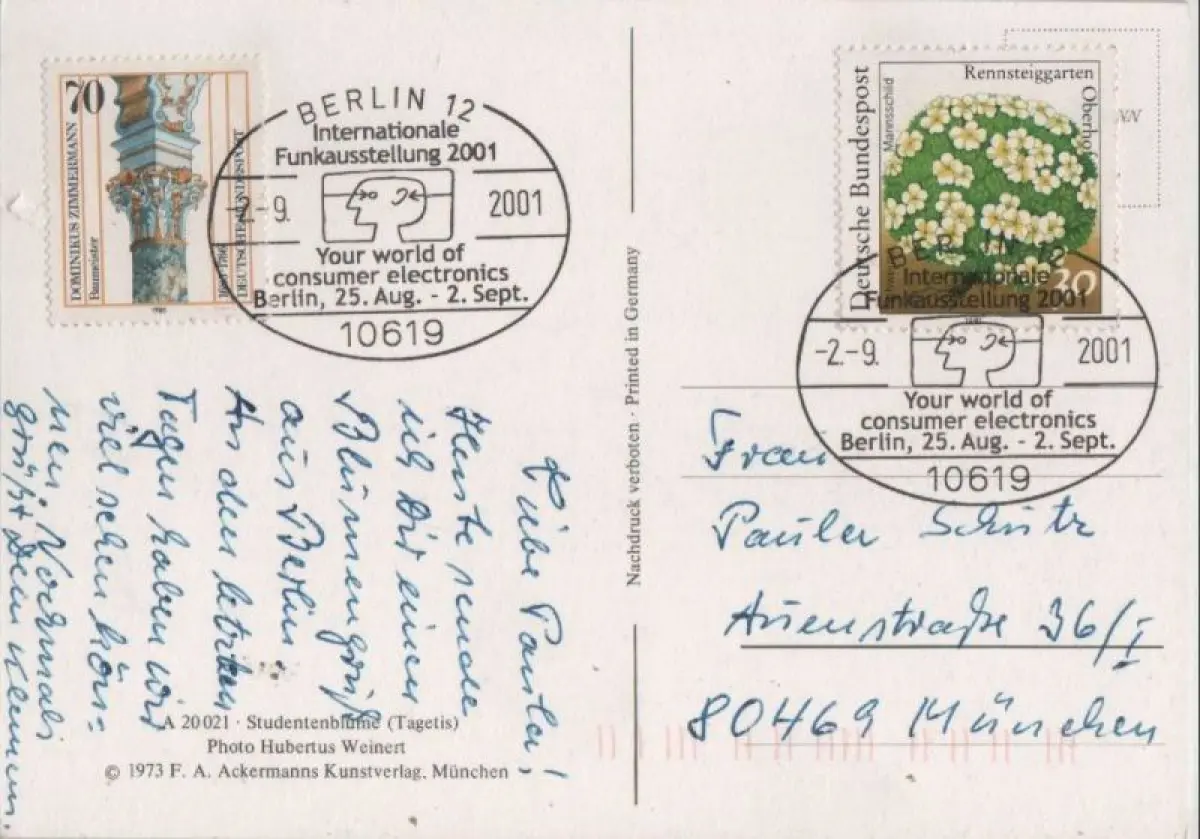 70
DOMINIKUS ZIMMERMANN
Baumeister
1685-1766
DEUTSCHE BUNDESPOST
BERLIN 12
Internationale
Funkausstellung 2001
-2.-9. 2001
Your world of
consumer electronics
Berlin, 25. Aug. - 2. Sept.
10619
Liebe
Heute sende
ich Dir einen
Blumengruß
aus Berlin
An den letzten
Tagen haben wir
viel sehen kön-
nen. Nochmals
grüßt Dein
A 20 021 · Studentenblume (Tagetis)
Photo Hubertus Weinert
© 1973 F. A. Ackermanns Kunstverlag, München
Nachdruck verboten · Printed in Germany
Deutsche Bundespost
Mannsschild
Rennsteiggarten
Oberhof
30
BERLIN 12
Internationale
Funkausstellung 2001
-2.-9. 2001
Your world of
consumer electronics
Berlin, 25. Aug. - 2. Sept.
10619
Frau
Schütz
Auenstraße 36/I
80469 München